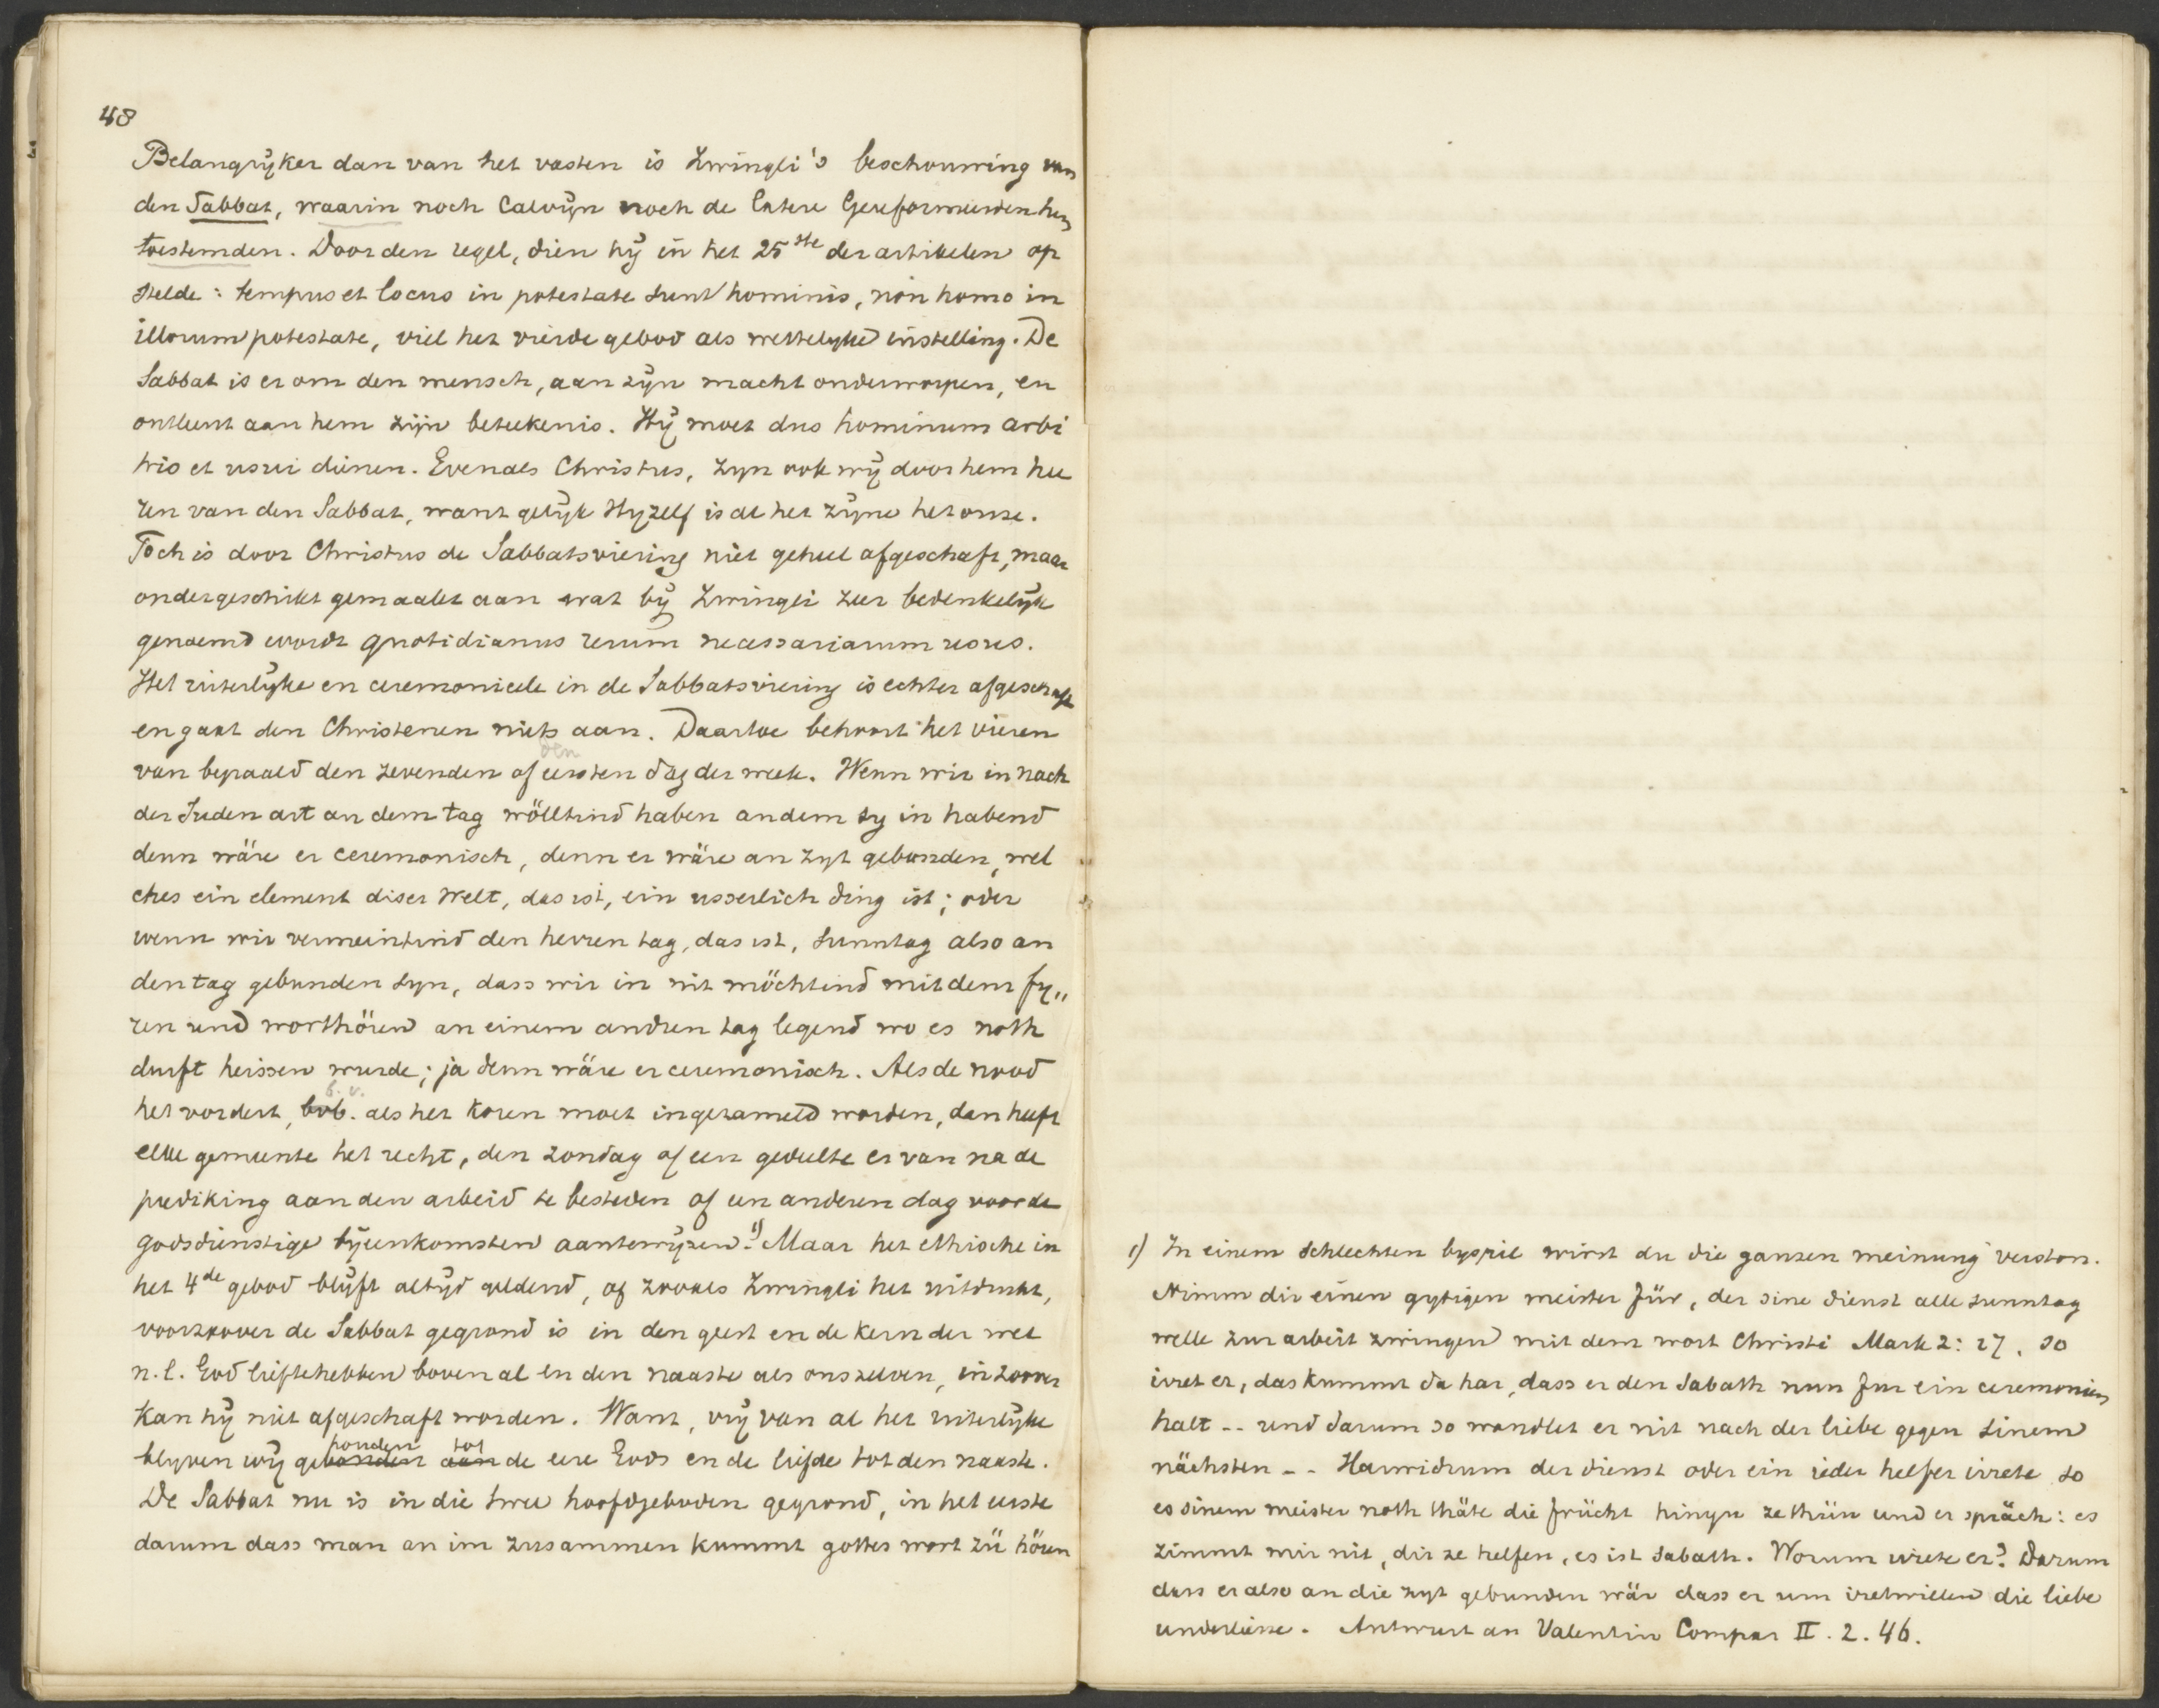 48
Belangrijker dan van het vasten is Zwingli's beschouwing van
den Sabbat, waarin noch Calvijn noch de latere Gereformeerden hem
toestemden. Door den regel, dien hij in het 25ste der artikelen op
stelde: tempus et locus in potestate sunt hominis, non homo in
illorum potestate, viel het vierde gebod als wettelyke instelling. De
Sabbat is er om den mensch, aan zijn macht onderworpen, en
ontleent aan hem zijn beteekenis. Hij moet dus hominum arbi
trio et usui dienen. Evenals Christus, zyn ook wij door hem hee
ren van den Sabbat, want gelijk Hyzelf is al het zijne het onze.
Toch is door Christus de Sabbatsviering niet geheel afgeschaft, maar
ondergeschikt gemaakt aan wat bij Zwingli zeer bedenkelijk
genoemd wordt quotidianus rerum necessariarum usus.
Het uiterlijke en ceremonieele in de Sabbatsviering is echter afgeschaft
en gaat den Christenen niets aan. Daartoe behoort het vieren
van bepaald den zevenden of den eersten dag der week. Wenn wir in nach
der Juden art an dem tag wölltind haben an dem sy in habend
denn wäre er ceremonisch, denn er wäre an zyt gebunden, wel
ches ein element diser welt, das ist, ein usserlich ding ist; oder
wenn wir vermeintind den herren tag, das ist, sunntag also an
den tag gebunden syn, dass wir in nit möchtind mit dem fy"
ren und worthören an einem andren tag legend wo es noth
durft heissen wurde; ja denn wäre er ceremonisch. Als de nood
het vordert, bvb. b.v. als het koren moet ingezameld worden, dan heeft
elke gemeente het recht, den zondag of een gedeelte er van na de
prediking aan den arbeid te besteden of een anderen dag voor de
godsdienstige bijeenkomsten aantewijzen.1) Maar het ethische in
het 4de gebod blijft altijd geldend, of zooals Zwingli het uitdrukt,
voorzoover de Sabbat gegrond is in den geest en de kern der wet
n.l. God liefhebben boven al en den naaste als onszelven, in zoover
kan hij niet afgeschaft worden. Want, vrij van al het uiterlijke
blyven wij gebonden houden aan tot de eere Gods en de liefde tot den naaste.
De Sabbat nu is in die twee hoofdgeboden gegrond, in het eerste
darum dass man an im zusammen kummt gottes wort zü hören
1) In einem schlechten byspil wirst du die ganzen meinung verston.
Nimm dir einen gytigen meister für, der sine dienst alle sunntag
welle zur arbeit zwingen mit dem wort Christi Mark 2: 27. so
irret er, das kummt da har, dass er den Sabath nun fur ein ceremonien
halt -- und darum so wandlet er nit nach der liebe gegen sinem
nächsten -- Harwidrum der dienst oder ein ieder helfer irrete so
es sinem meister noth thäte die frücht hinyn ze thün und er spräch: es
zimmt mir nit, dir ze helfen, es ist sabath. Worum irrete er? Darum
dass er also an die zyt gebunden wär dass er um iretwillen die liebe
underliesse. Antwurt an Valentin Compar II. 2. 46.